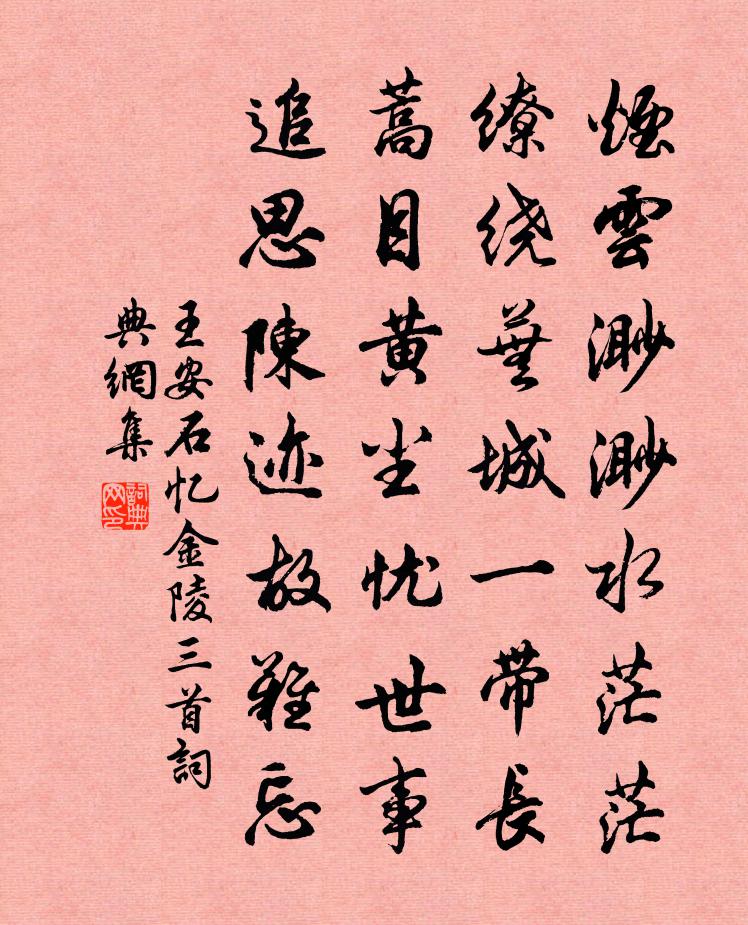 煙雲渺渺水茫茫
繚绕蕪城一带長
蒿目黄尘忧世事
追思陳迹故難忘
王安石忆金陵三首詞
典網集
詞典网印